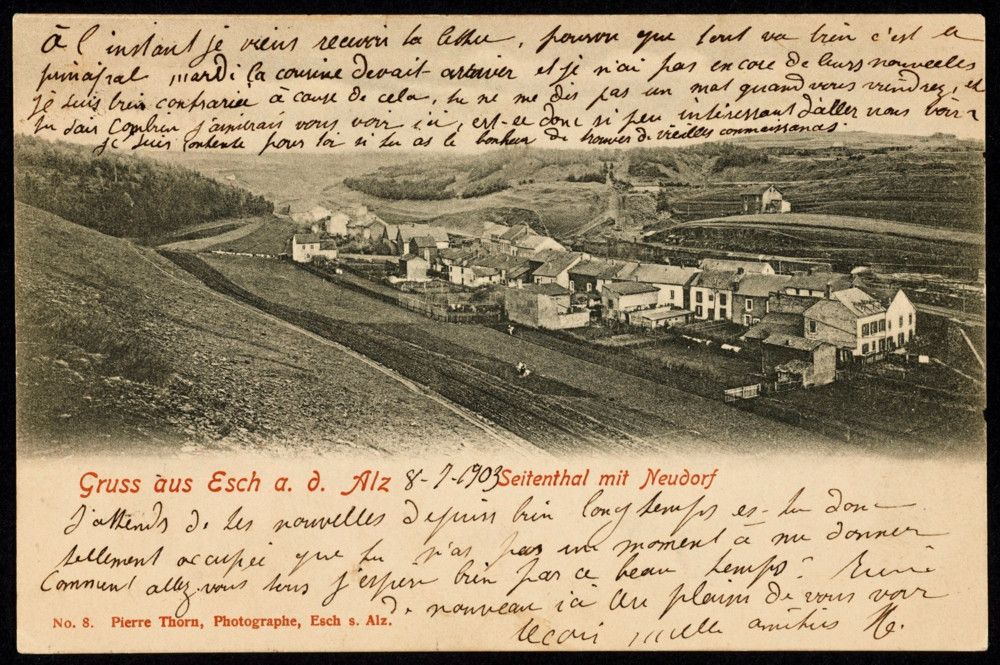 à l'instant je viens recevoir ta lettre, pourvu que tout va bien c'est le
principal mardi la cousine devait arriver et je n'ai pas encore de leurs nouvelles
je suis bien contrariée à cause de cela, tu ne me dis pas un mot quand vous viendrez, et
tu sais combien j'aimerais vous voir ici, est-ce donc si peu intéressant d'aller nous voir
je suis contente pour toi si tu as le bonheur de trouver de vieilles connaissances.
Gruss aus Esch a. d. Alz 8-7-1903 Seitenthal mit Neudorf
J'attends de tes nouvelles depuis bien longtemps es-tu donc
tellement occupée que tu n'as pas un moment à me donner
Comment allez-vous tous j'espère bien par ce beau temps?
de nouveau ici au plaisir de vous voir
No. 8. Pierre Thorn, Photographe, Esch s. Alz.
mille amitiés